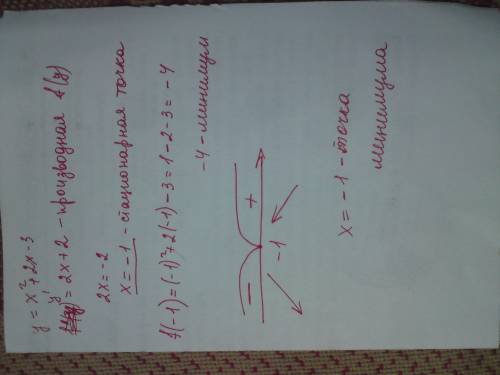 y = x² + 2x - 3
y' = 2x + 2 - производная f(y)
2x = -2
x = -1 - стационарная точка
f(-1) = (-1)² + 2(-1) - 3 = 1 - 2 - 3 = -4
-4 - минимум
- +
-1
x = -1 - точка
минимума